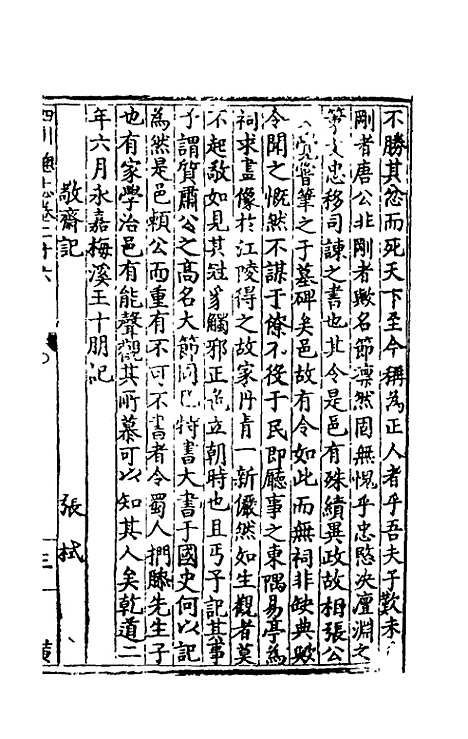 不勝其忿而死天下至今稱為正人者乎吾夫子歎未
剛者唐公非剛者歟名節凜然固無愧乎忠愍決澶淵之
忠移司諫之書也其令是邑有殊績異政故相張公
嘗筆之于墓碑矣邑故有令如此而無祠非缺典歟
令聞之慨然不謀于僚不役于民即廳事之東隅易亭為
祠求畫像於江陵得之故家丹青一新儼然如生觀者莫
不起敬如見其冠豸觸邪正色立朝時也且丐予記其事
予謂質肅公之高名大節固已特書大書于國史何以記
為然是邑頼公而重有不可不書者令蜀人捫膝先生子
也有家學治邑有能聲觀其所慕可以知其人矣乾道二
年六月永嘉梅溪王十朋記
敬齋記 張栻
四川總志卷二十六 三